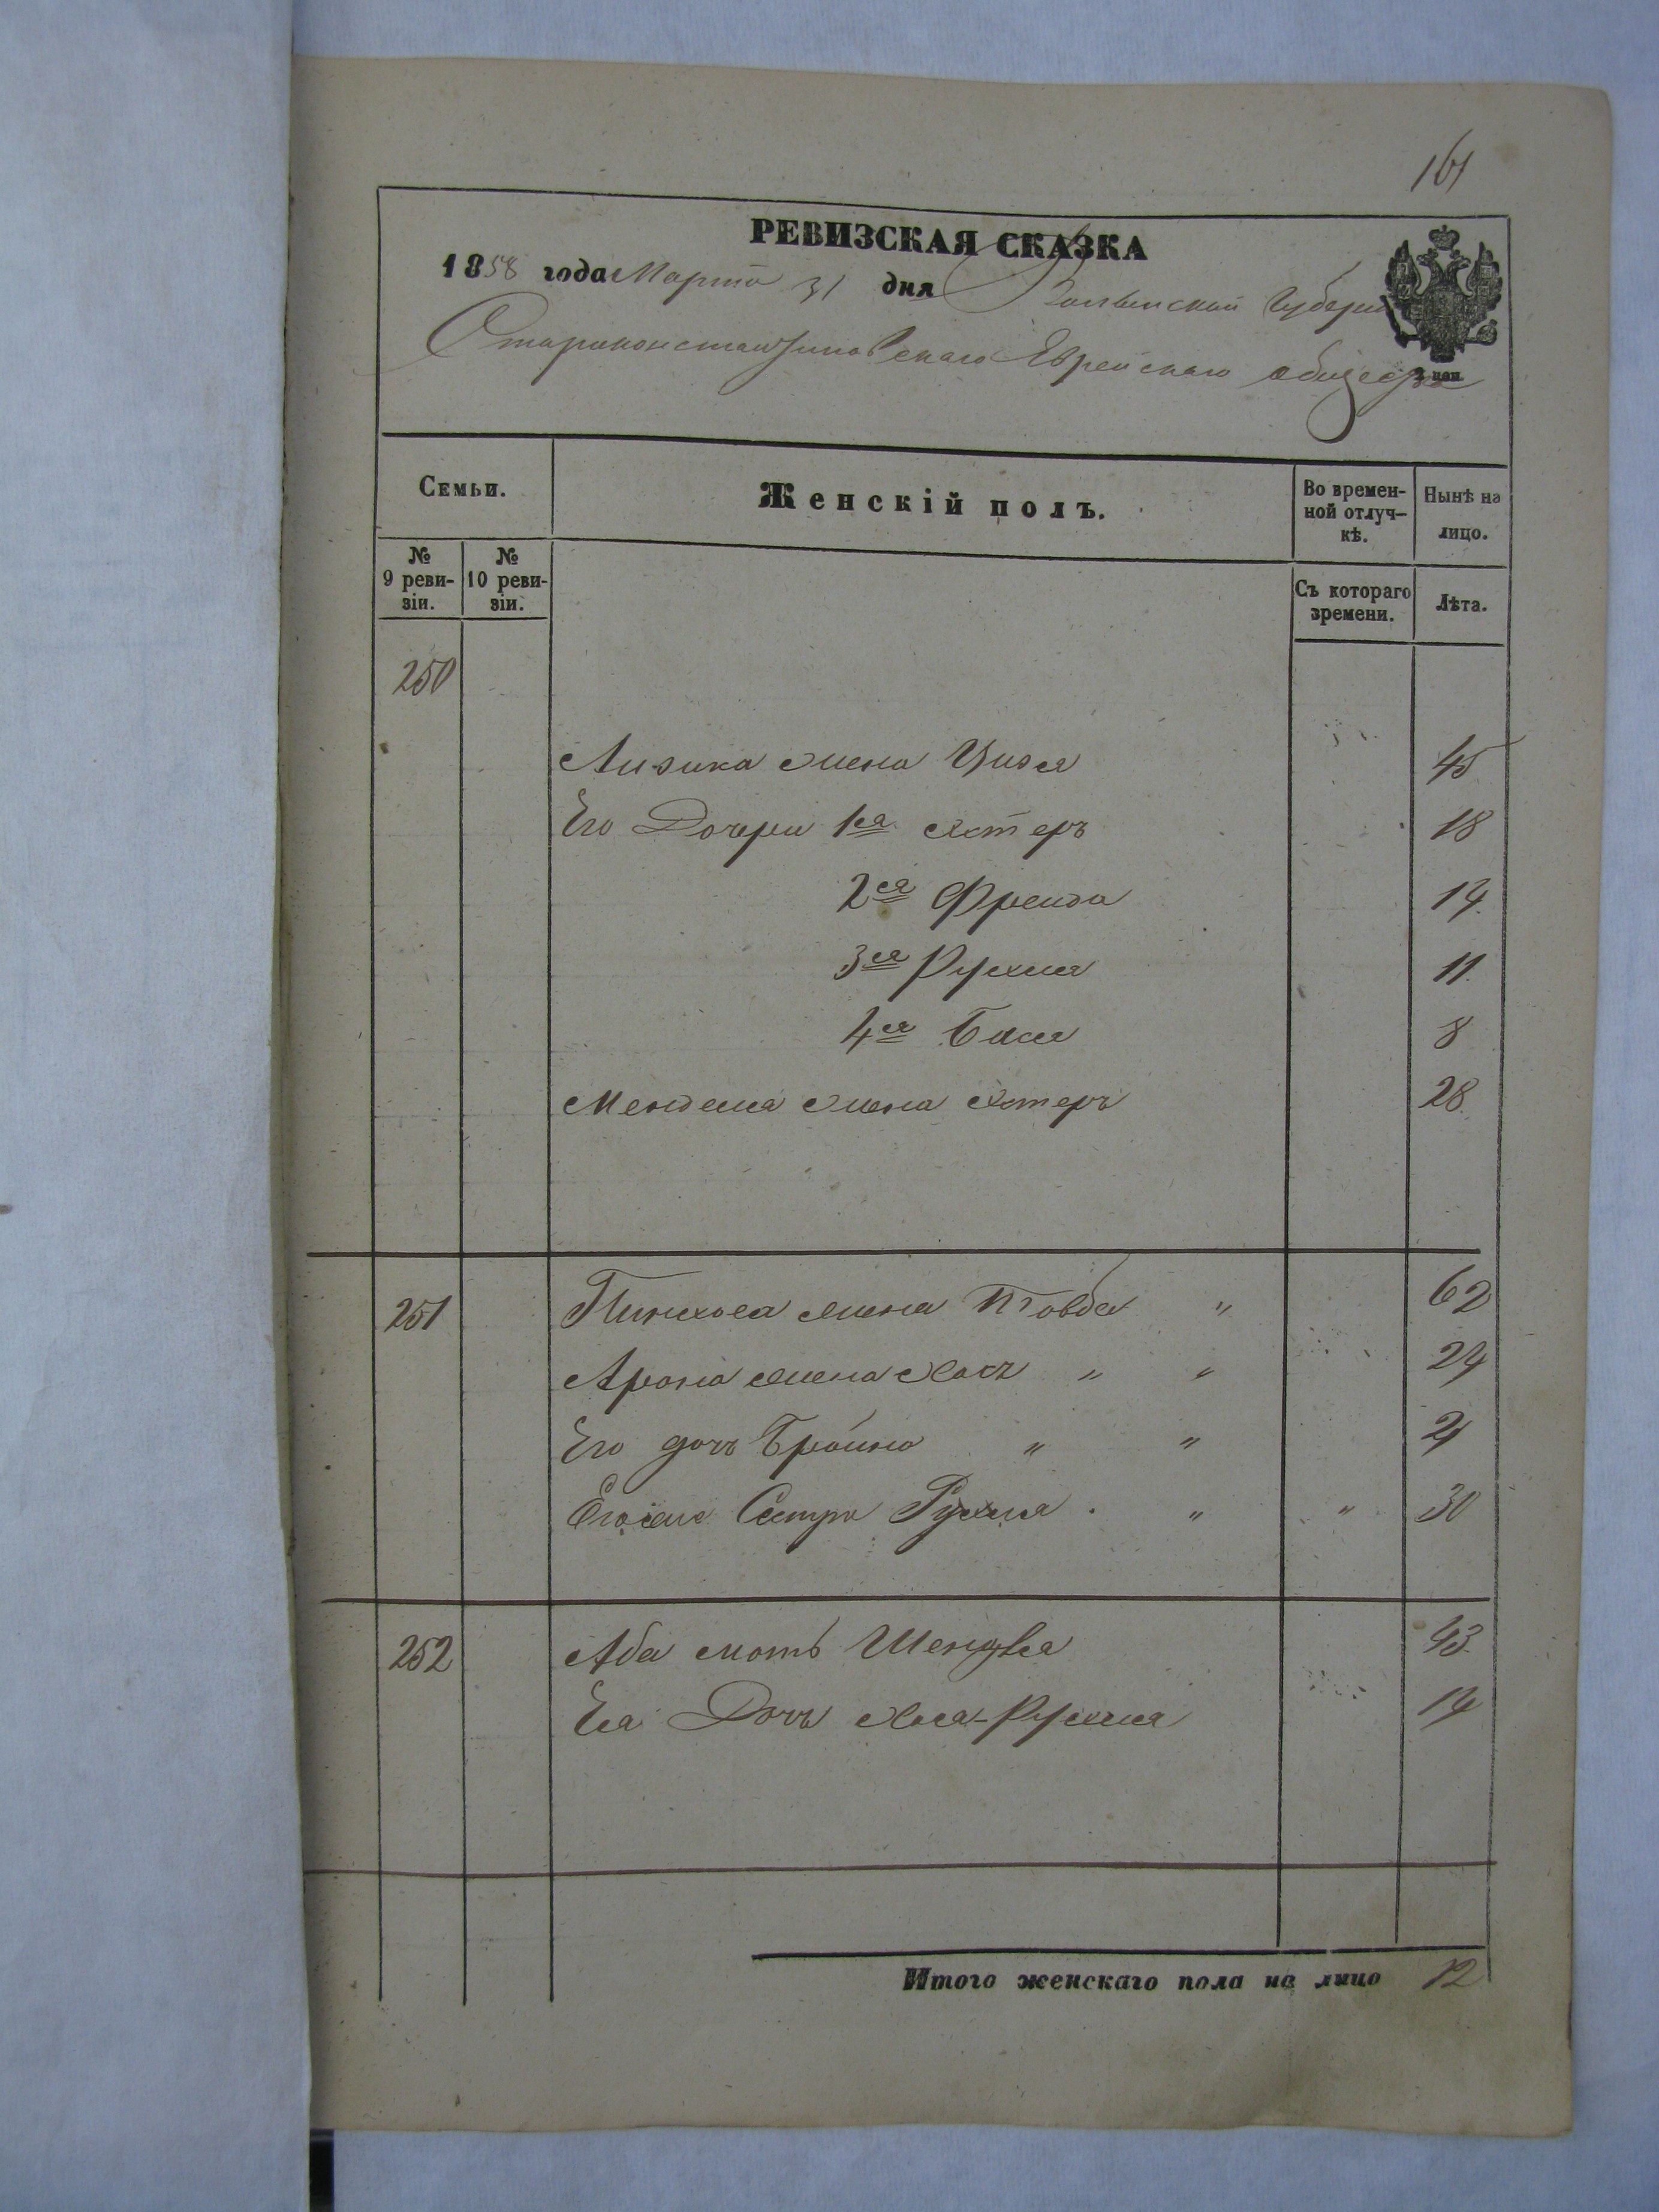 161
РЕВИЗСКАЯ СКАЗКА
1858 года Марта 31 дня Волынской Губернiи
Староконстантиновскаго Еврейскаго общества
Семьи.
Женскій полъ.
Во времен-
ной отлуч-
кѣ.
Нынѣ на
лицо.
№
9 реви-
зіи.
№
10 реви-
зіи.
Съ котораго
времени.
Лѣта.
250
Айзика жена Цизя 45
Его Дочери 1я Эстеръ 18
2я Фрейда 14
3я Рухля 11
4я Бася 8
Менделя жена Эстеръ 28
251 Пинхоса жена Товба " 62
Арона жена Хая " " 24
Его дочь Бройна " " 2
Его же Сестра Рухля . " " 30
252 Аба мать Шендля 43
Ея Дочь Хая-Рухля 14
Итого женскаго пола на лицо 12